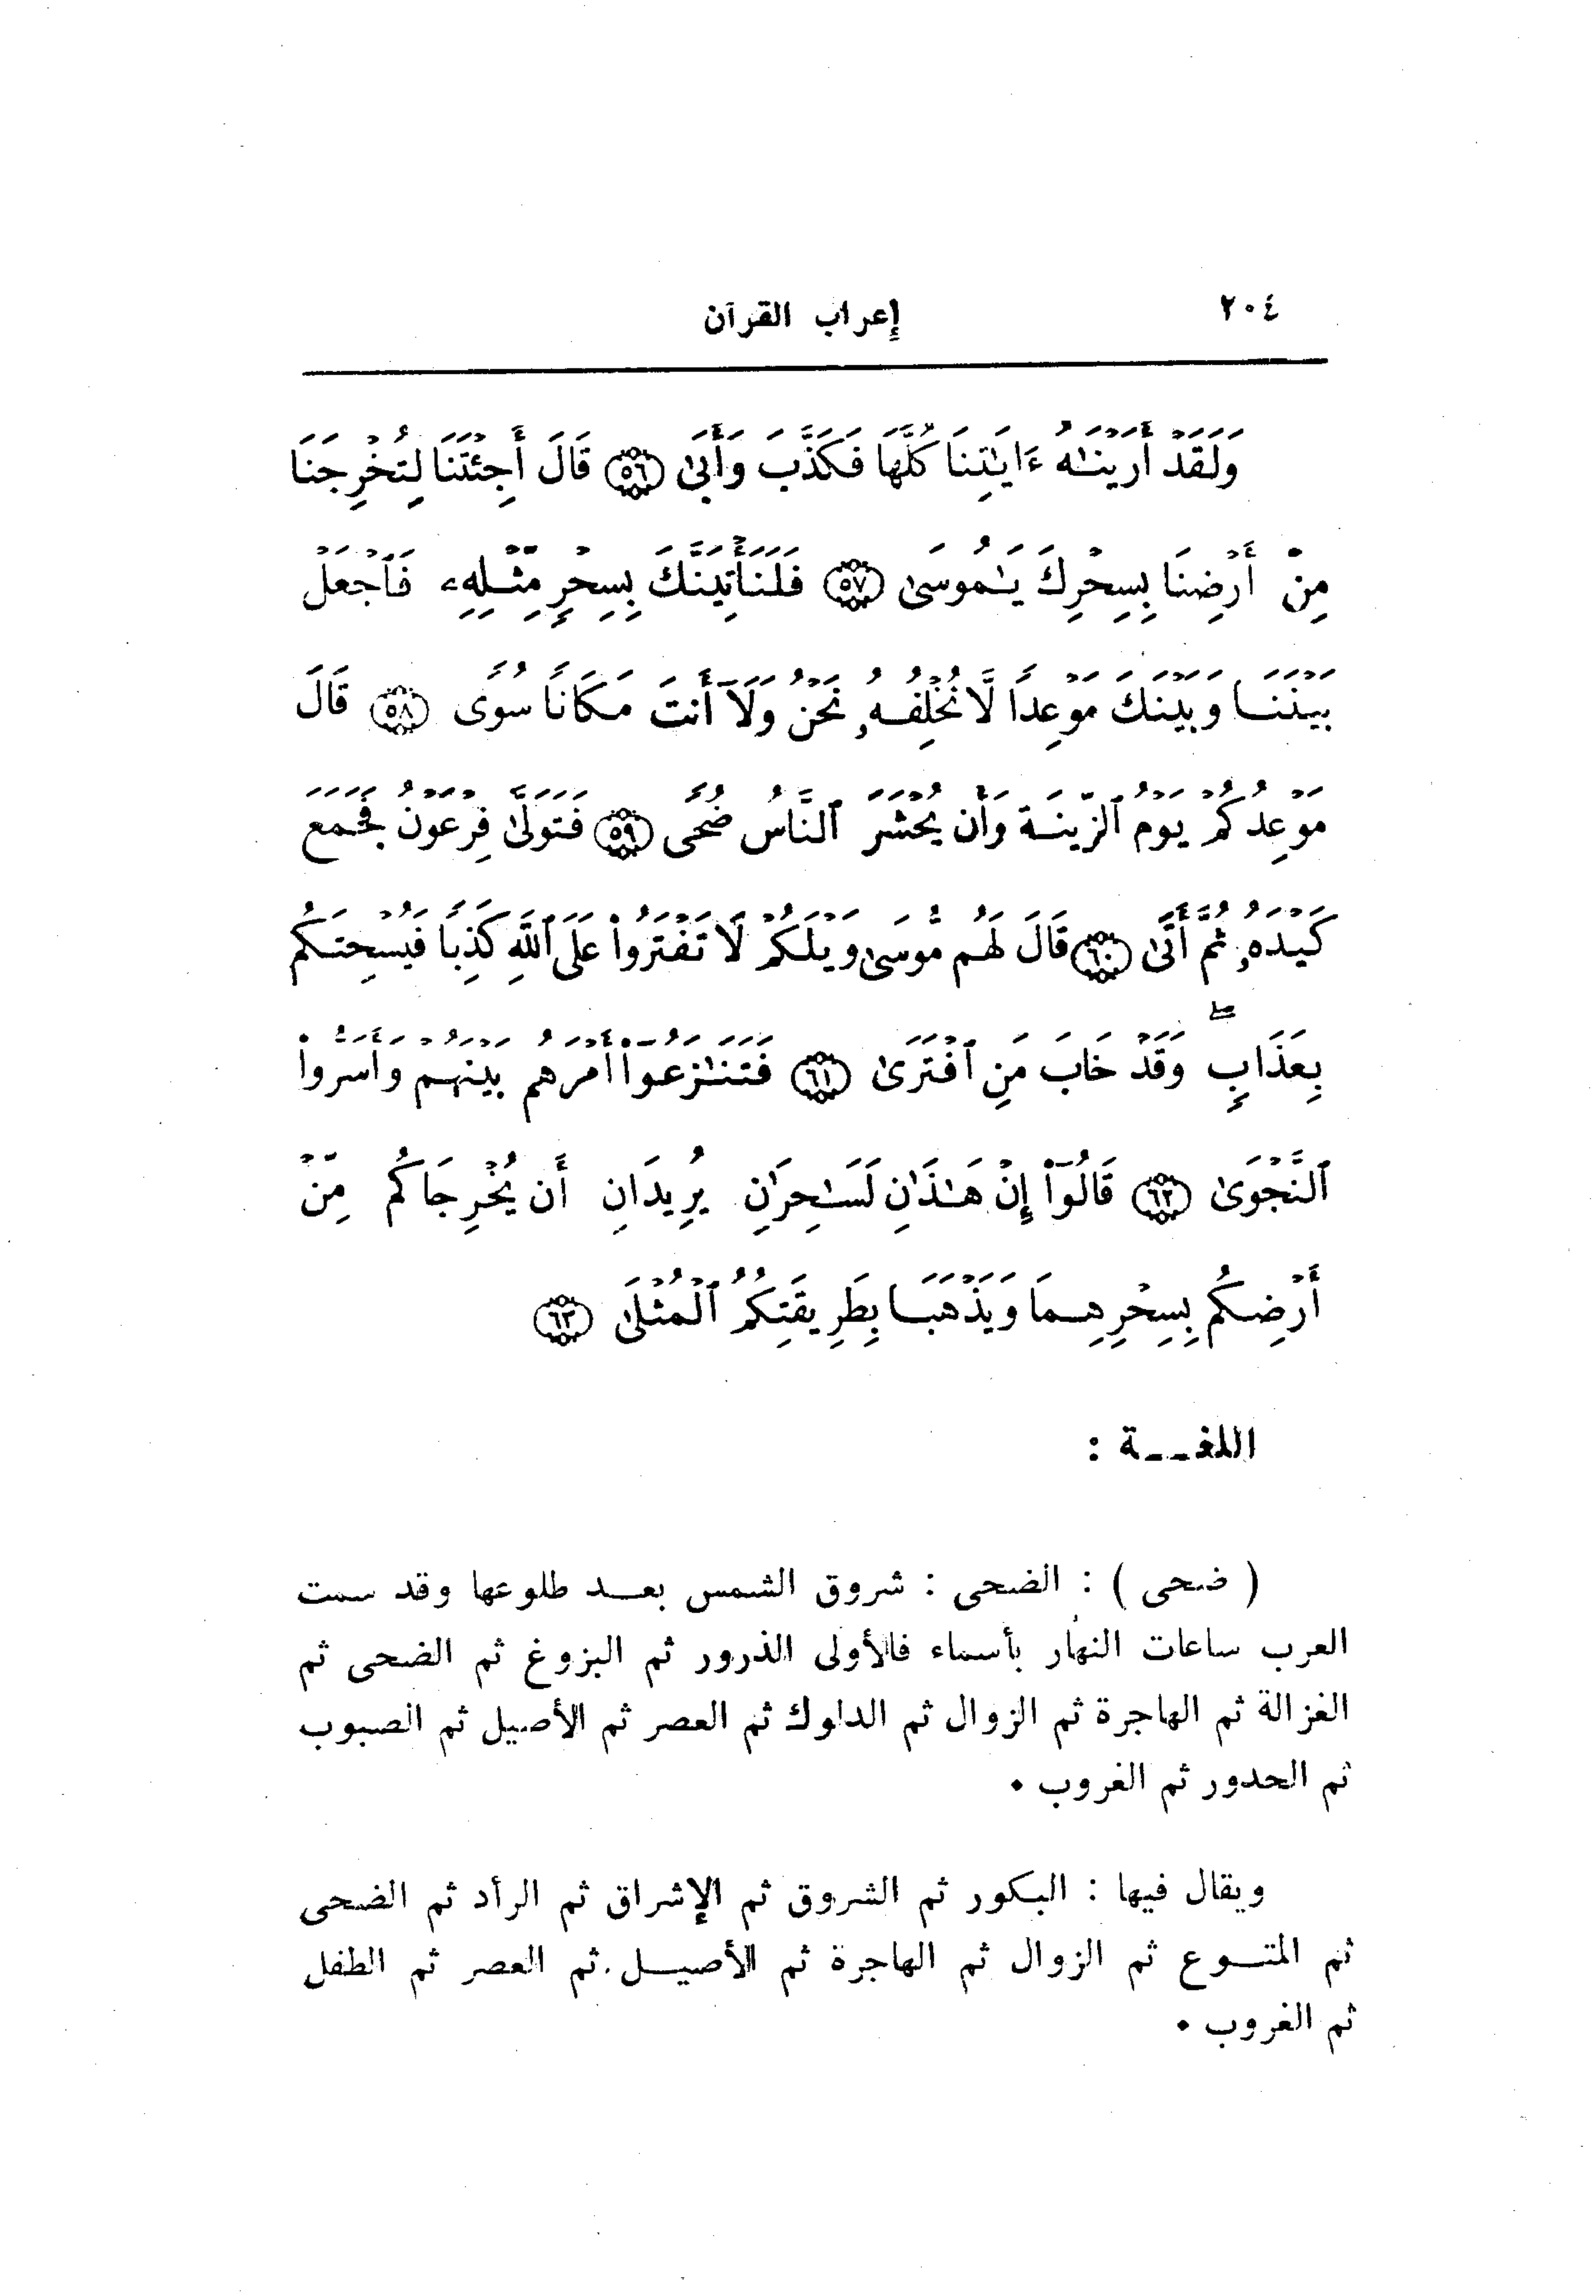 ٢٠٤ إعراب القرآن
وَلَقَدْ أَرَيْنَٰهُ ءَايَٰتِنَا كُلَّهَا فَكَذَّبَ وَأَبَىٰ ٥٦ قَالَ أَجِئْتَنَا لِتُخْرِجَنَا
مِنْ أَرْضِنَا بِسِحْرِكَ يَٰمُوسَىٰ ٥٧ فَلَنَأْتِيَنَّكَ بِسِحْرٍ مِّثْلِهِۦ فَٱجْعَلْ
بَيْنَنَا وَبَيْنَكَ مَوْعِدًا لَّا نُخْلِفُهُۥ نَحْنُ وَلَآ أَنتَ مَكَانًا سُوًى ٥٨ قَالَ
مَوْعِدُكُمْ يَوْمُ ٱلزِّينَةِ وَأَن يُحْشَرَ ٱلنَّاسُ ضُحًى ٥٩ فَتَوَلَّىٰ فِرْعَوْنُ فَجَمَعَ
كَيْدَهُۥ ثُمَّ أَتَىٰ ٦٠ قَالَ لَهُم مُّوسَىٰ وَيْلَكُمْ لَا تَفْتَرُوا۟ عَلَى ٱللَّهِ كَذِبًا فَيُسْحِتَكُم
بِعَذَابٍ ۖ وَقَدْ خَابَ مَنِ ٱفْتَرَىٰ ٦١ فَتَنَٰزَعُوٓا۟ أَمْرَهُم بَيْنَهُمْ وَأَسَرُّوا۟
ٱلنَّجْوَىٰ ٦٢ قَالُوٓا۟ إِنْ هَٰذَٰنِ لَسَٰحِرَٰنِ يُرِيدَانِ أَن يُخْرِجَاكُم مِّنْ
أَرْضِكُم بِسِحْرِهِمَا وَيَذْهَبَا بِطَرِيقَتِكُمُ ٱلْمُثْلَىٰ ٦٣
اللغـــة :
( ضحى ) : الضحى : شروق الشمس بعد طلوعها وقد سمت
العرب ساعات النهار بأسماء فالأولى الذرور ثم البزوغ ثم الضحى ثم
الغزالة ثم الهاجرة ثم الزوال ثم الدلوك ثم العصر ثم الأصيل ثم الصبوب
ثم الحدور ثم الغروب ٠
ويقال فيها : البكور ثم الشروق ثم الإشراق ثم الرأد ثم الضحى
ثم المتوع ثم الزوال ثم الهاجرة ثم الأصيل ثم العصر ثم الطفل
ثم الغروب ٠